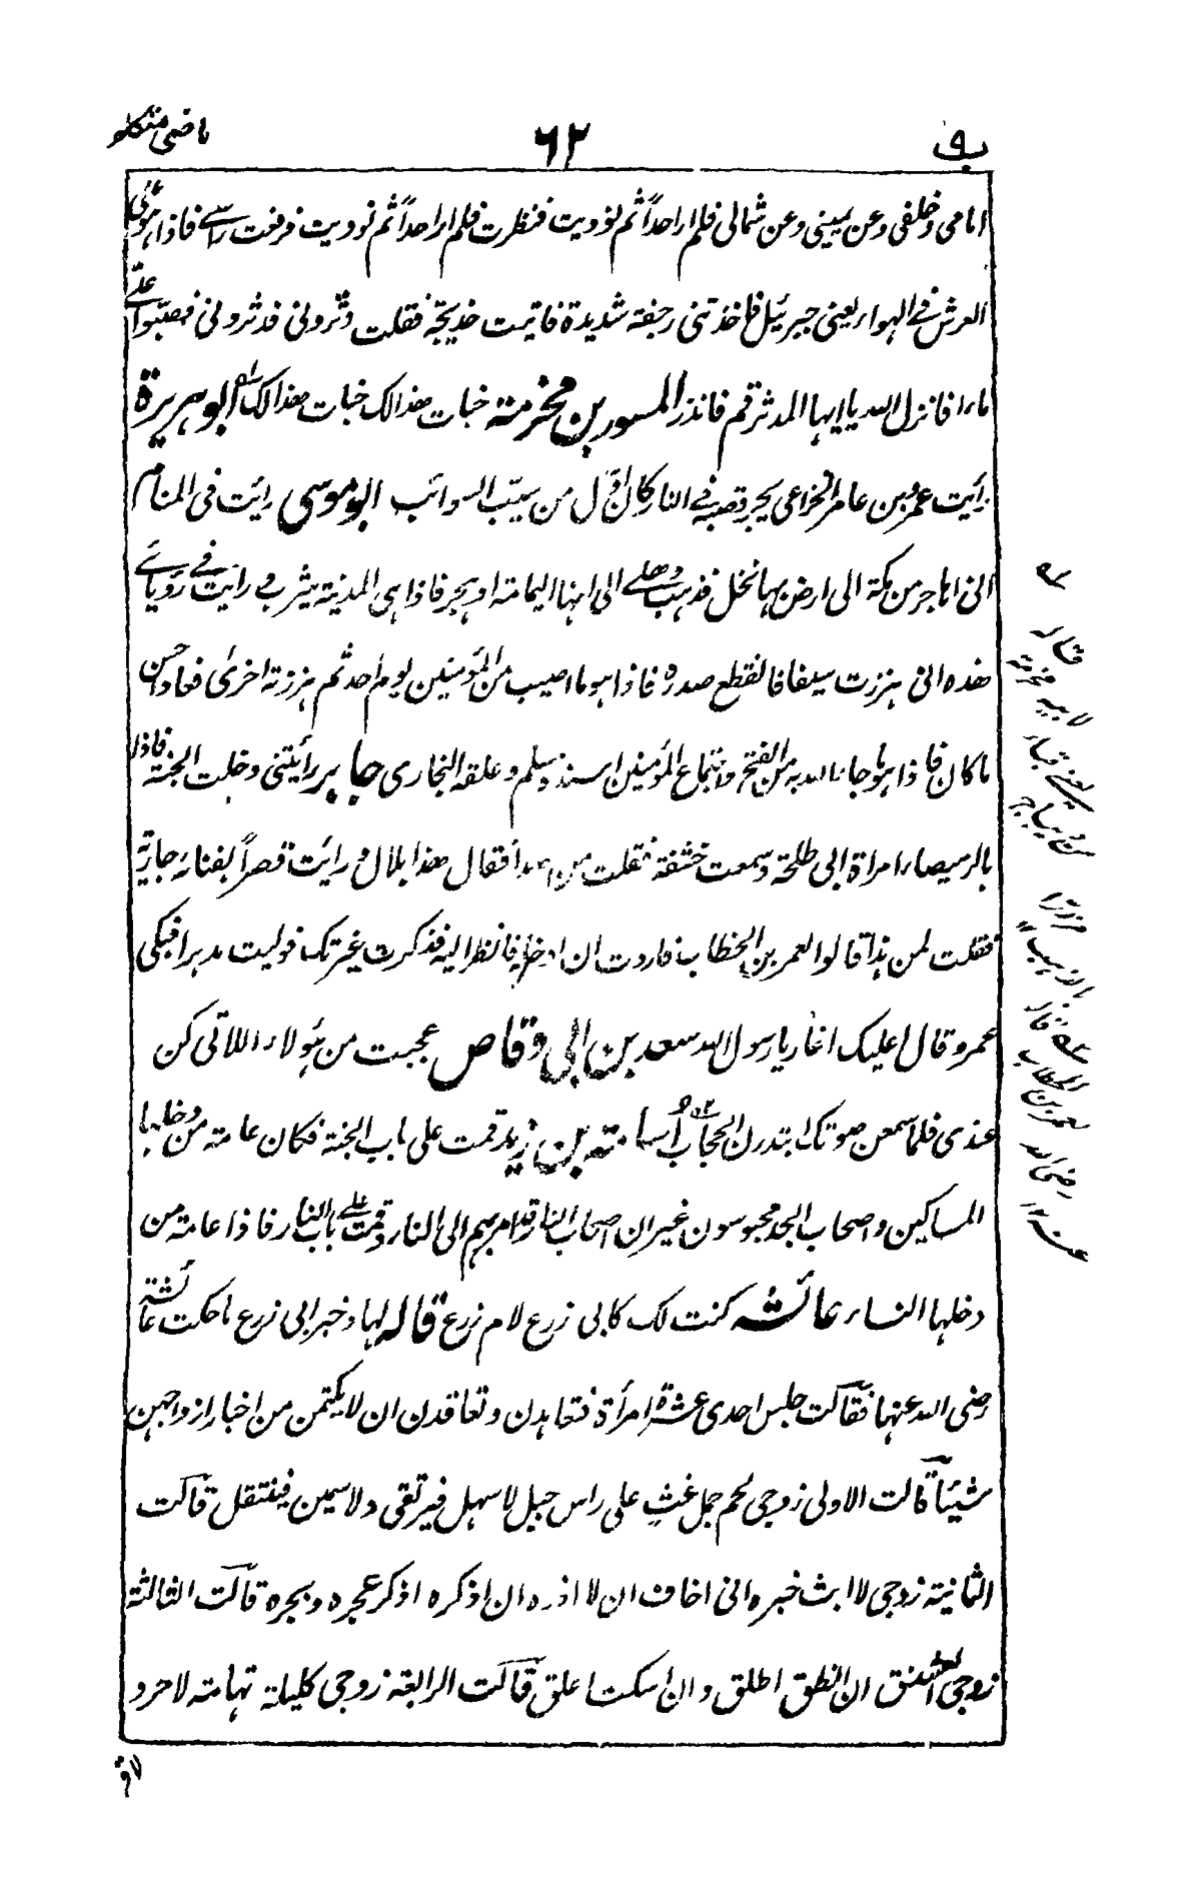 ب ٩
٦٢
ماضی متکلم
امامی وخلفی وعن یمینی وعن شمالی فلم ار احداً ثم نودیت فنظرت فلم ار احداً ثم نودیت فرفعت راسی فاذا هو علی
العرش فی الهواء یعنی جبرئیل فاخذتنی رجفة شدیدة فاتیت خدیجة فقلت دثرونی فدثرونی فصبّوا علیّ
ماءا فانزل الله یا ایها المدثر قم فانذر المسور بن مخرمة خبات هذا لک خبات هذا لک ابو هریرة
رأیت عمرو بن عامر الخزاعی یجر قصبه فی النار کان اوّل من سیّب السوائب ابو موسی رایت فی المنام
انی اهاجر من مکة الی ارض بها نخل فذهب وهلی الی انها الیمامة او هجر فاذا هی المدینة یثرب و رایت فی رؤیائی
هذه انی هززت سیفا فانقطع صدره فاذا هو ما اصیب من المؤمنین یوم احد ثم هززته اخری فعاد احسن
ما کان فاذا هو ما جاء الله به من الفتح واجتماع المؤمنین اسنده مسلم وعلقه البخاری جابر رأیتنی دخلت الجنة فاذا
بالرمیصاء امراة ابی طلحة وسمعت خشفة فقلت من هذا فقال هذا بلال و رایت قصراً بفنائه جاریة
فقلت لمن هذا قالوا لعمر بن الخطاب فاردت ان ادخله فانظر الیه فذکرت غیرتک فولیت مدبرا فبکی
عمر وقال اعلیک اغار یا رسول الله سعد بن ابی وقاص عجبت من هؤلاء اللاتی کن
عندی فلما سمعن صوتک ابتدرن الحجاب اُسامة بن زید قمت علی باب الجنة فکان عامة من دخلها
المساکین واصحاب الجد محبوسون غیر ان اصحاب النار قد امر بهم الی النار وقمت علی باب النار فاذا عامة من
دخلها النساء عائشة کنت لک کابی زرع لام زرع قاله لها وخبر ابی زرع ما حکت عائشة
رضی الله عنها فقالت جلس احدی عشرة امرأة فتعاهدن وتعاقدن ان لا یکتمن من اخبار ازواجهن
شیئاً قالت الاولی زوجی لحم جمل غث علی راس جبل لا سهل فیرتقی ولا سمین فینتقل قالت
الثانیة زوجی لا ابث خبره انی اخاف ان لا اذره ان اذکره اذکر عجره وبجره قالت الثالثة
زوجی العشنق ان انطق اطلق وان اسکت اعلق قالت الرابعة زوجی کلیلة تهامة لا حر و
لا قر
قاله
لابیه مخرمة
یعنی قباء
من دیباج
مزررا
بالذهب
قاله
لعمر بن الخطاب
رضی الله
عنه ١٢